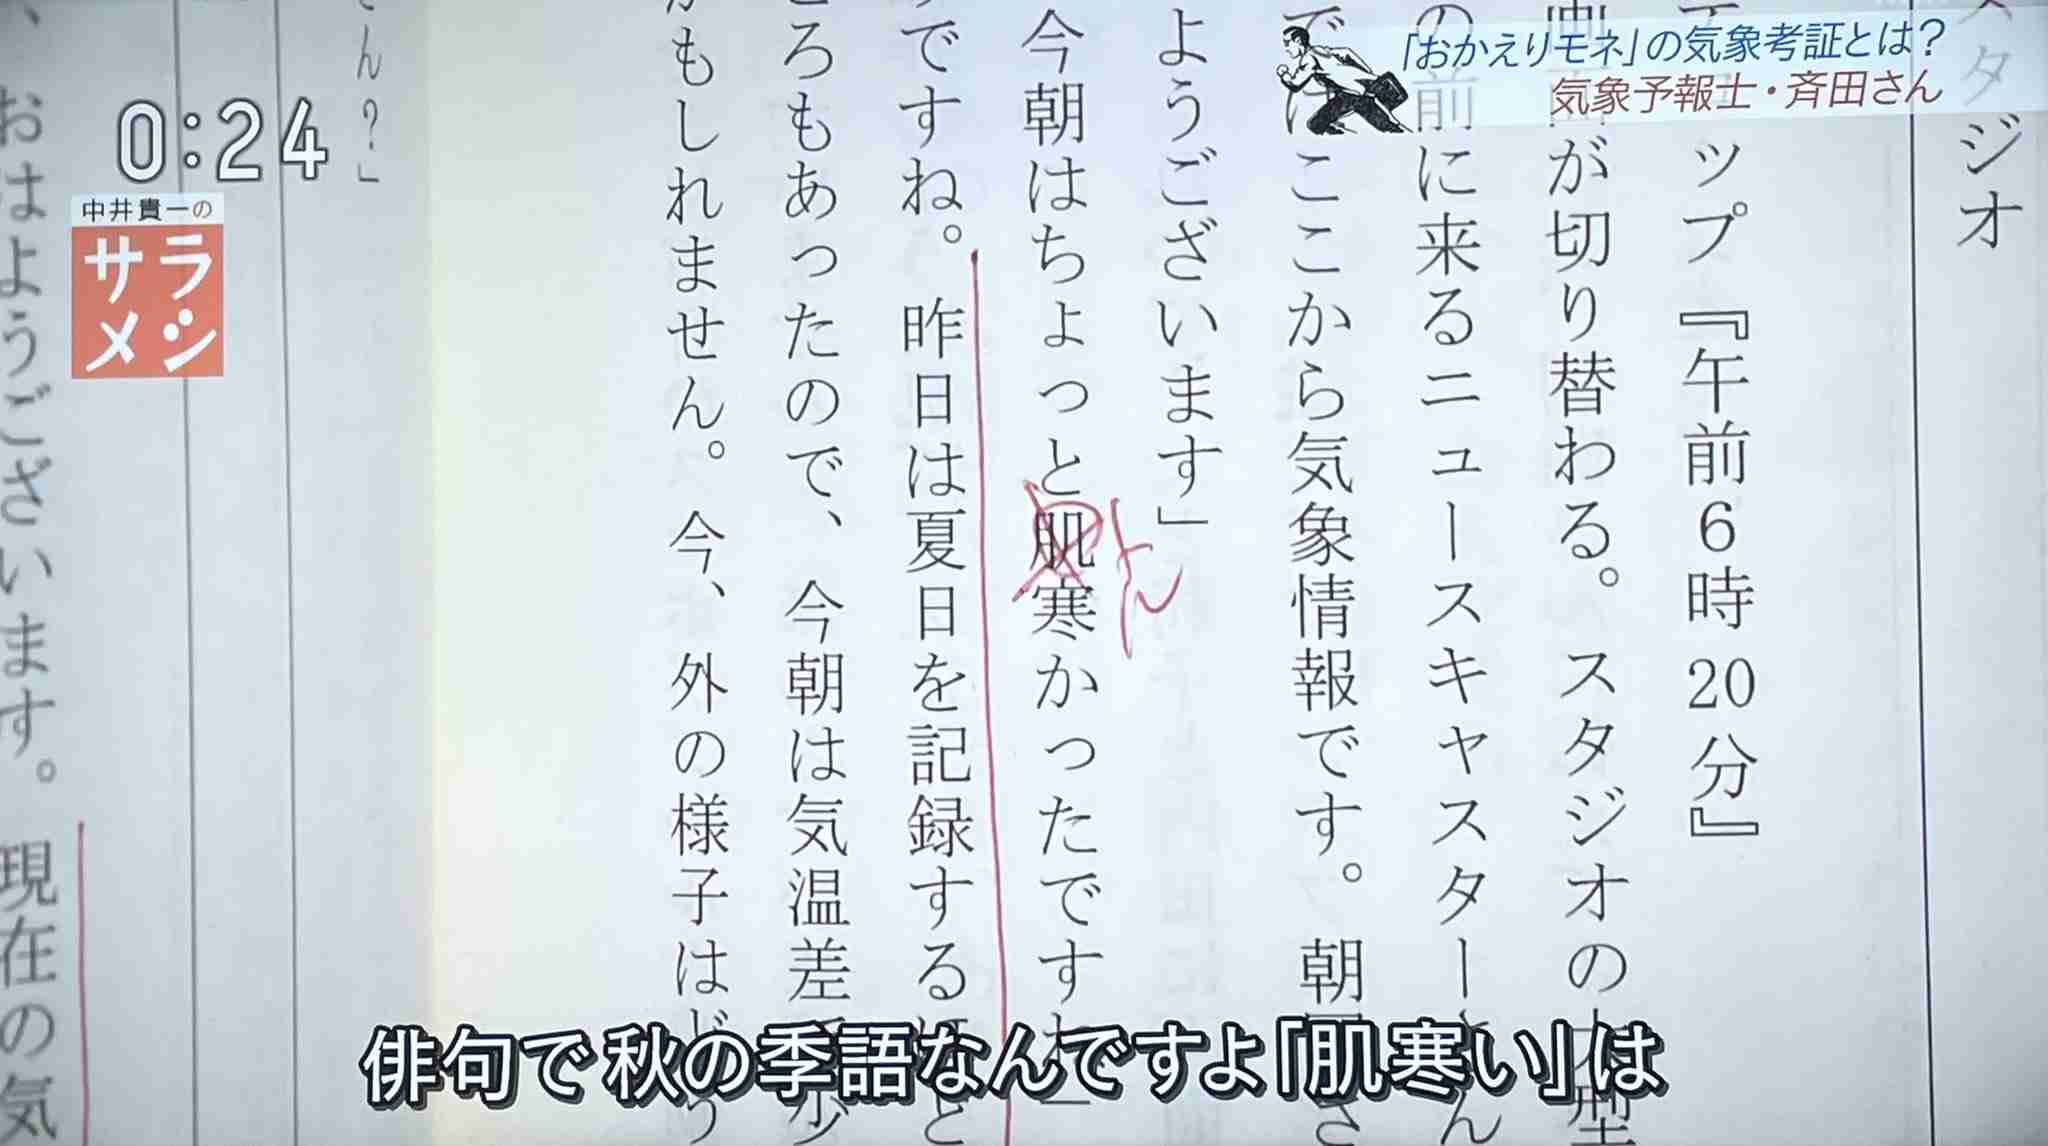 「おかえりモネ」の気象考証とは？
気象予報士・斉田さん
0:24
中井貴一の
サラ
メシ
スタジオ
ップ『午前6時20分』
画面が切り替わる。スタジオの大型
の前に来るニュースキャスター
ここから気象情報です。朝
ようございます」
今朝はちょっと肌寒かったですね」
ん
ですね。昨日は夏日を記録する
ころもあったので、今朝は気温差
かもしれません。今、外の様子は
さん？」
おはようございます。現在の気
俳句で 秋の季語なんですよ「肌寒い」は